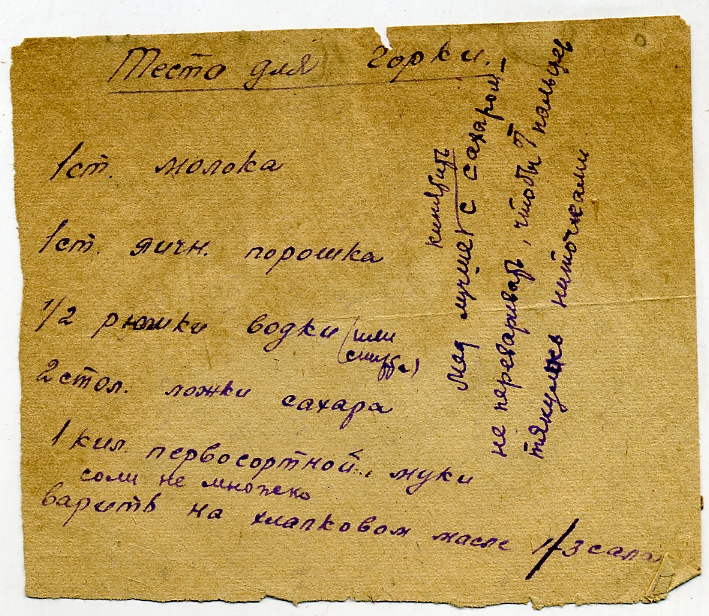 Тесто для горки.
1 ст. молока
1 ст. яичн. порошка
1/2 рюмки водки (или
спирта)
2 стол. ложки сахара
1 кил. первосортной муки
соли не множко
варить на хлапковом масле 1/3 сала
кипятить
мед лучше с сахаром –
не переваривать, чтобы от пальцев
тянулись ниточками